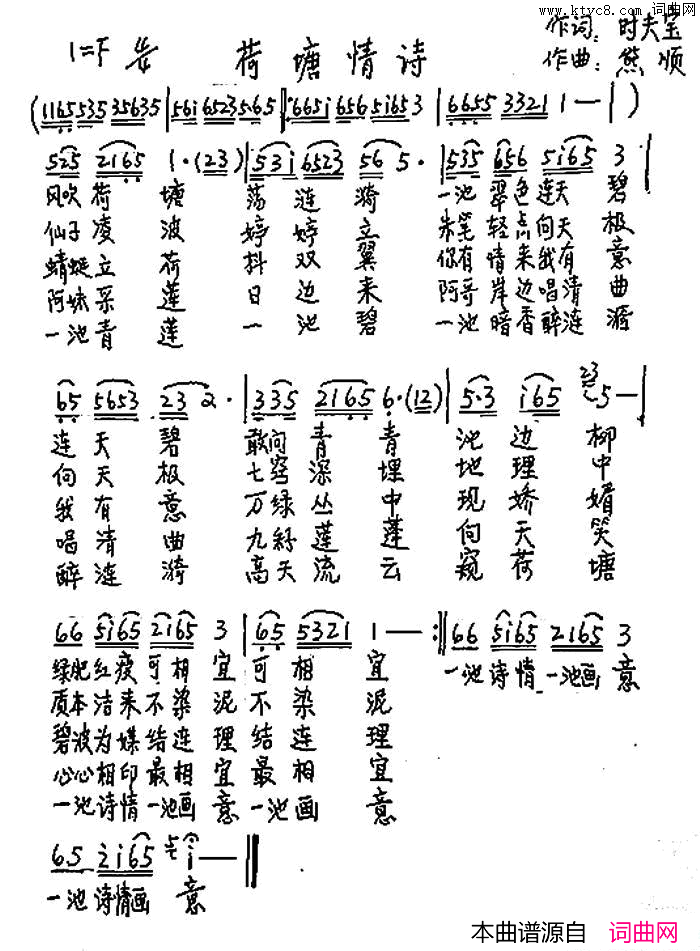 www.ktyc8.com 词曲网
1=F 荷塘情诗 作词：时夫宝
作曲：熊顺
(1165 535 35635 | 56i 6523 565 | 665i 656 5i65 3 | 6655 3321 1 — | )
525 2165 1·(23) | 53i 6523 56 5· | 535 656 5i65 3 |
风吹荷 塘 荡 涟 漪 一池 翠色连天 碧
仙子凌 波 婷 婷 立 朱笔 轻点向天 极
蜻蜓立 荷 抖 双 翼 你有 情来我有 意
阿妹采 莲 日 边 来 阿哥 岸边唱清 曲
一池青 莲 一 池 碧 一池 暗香醉涟 漪
65 5653 23 2· | 335 2165 6·(12) | 5·3 i65 23 5 — |
连 天 碧 敢问 青 青 池 边 柳
向 天 极 七窍 深 埋 地 理 中
我 有 意 万绿 丛 中 现 娇 媚
唱 清 曲 九 莲 蓬 向 天 笑
醉 涟 漪 高天 流 云 窥 荷 塘
66 5i65 2165 3 | 65 5321 1 — :‖ 66 5i65 2165 3
绿肥红瘦可相 宜 可 相 宜 一池诗情一池画 意
质本洁来不染 泥 不 染 泥
碧波为媒结连 理 结 连 理
心心相印最相 宜 最 相 宜
一池诗情一池画 意 一池画 意
65 2i65 i — ‖
一池 诗情画 意
本曲谱源自 词曲网